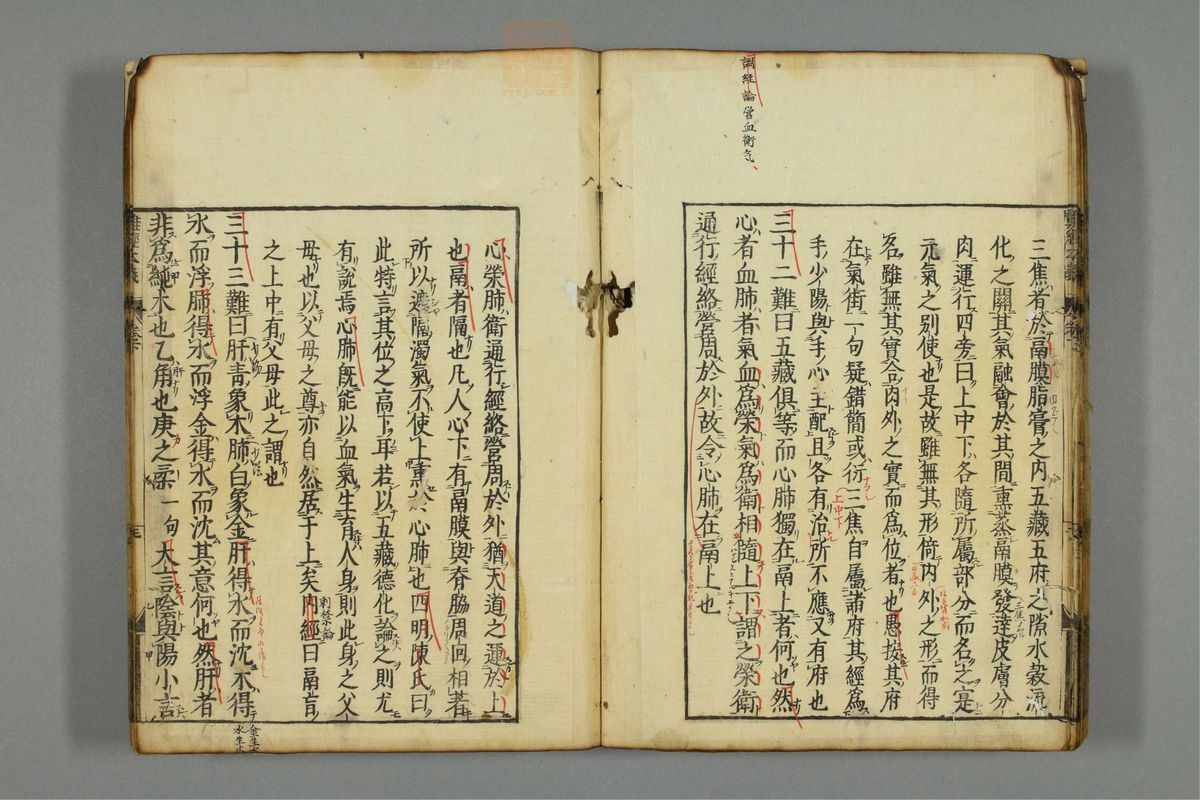 調經論營血衛氣
三焦者於鬲膜脂膏之内五藏五府之隙水穀流
化之關其氣融會於其間熏蒸鬲膜發達皮膚分
肉運行四旁曰上中下各隨所屬部分而名之寔
元氣之别使也是故雖無其形倚内外之形而得
名雖無其實合内外之實而爲位者也愚按其府
在氣街一句疑錯簡或衍三焦自屬諸府其經爲
手少陽與手心主配且各有治所不應又有府也
三十二難曰五藏俱等而心肺獨在鬲上者何也然
心者血肺者氣血爲榮氣爲衛相隨上下謂之榮衛
通行經絡營周於外故令心肺在鬲上也
心榮肺衛通行經絡營周於外猶天道之運於上
也鬲者隔也凡人心下有鬲膜與脊脇周回相著
所以遮隔濁氣不使上熏於心肺也四明陳氏曰
此特言其位之高下耳若以五藏德化論之則尤
有說焉心肺旣能以血氣生育人身則此身之父
母也以父母之尊亦自然居于上矣内經曰鬲肓
之上中有父母此之謂也
三十三難曰肝青象木肺白象金肝得水而沈木得
水而浮肺得水而浮金得水而沈其意何也然肝者
非爲純木也乙角也庚之柔一句大言陰與陽小言